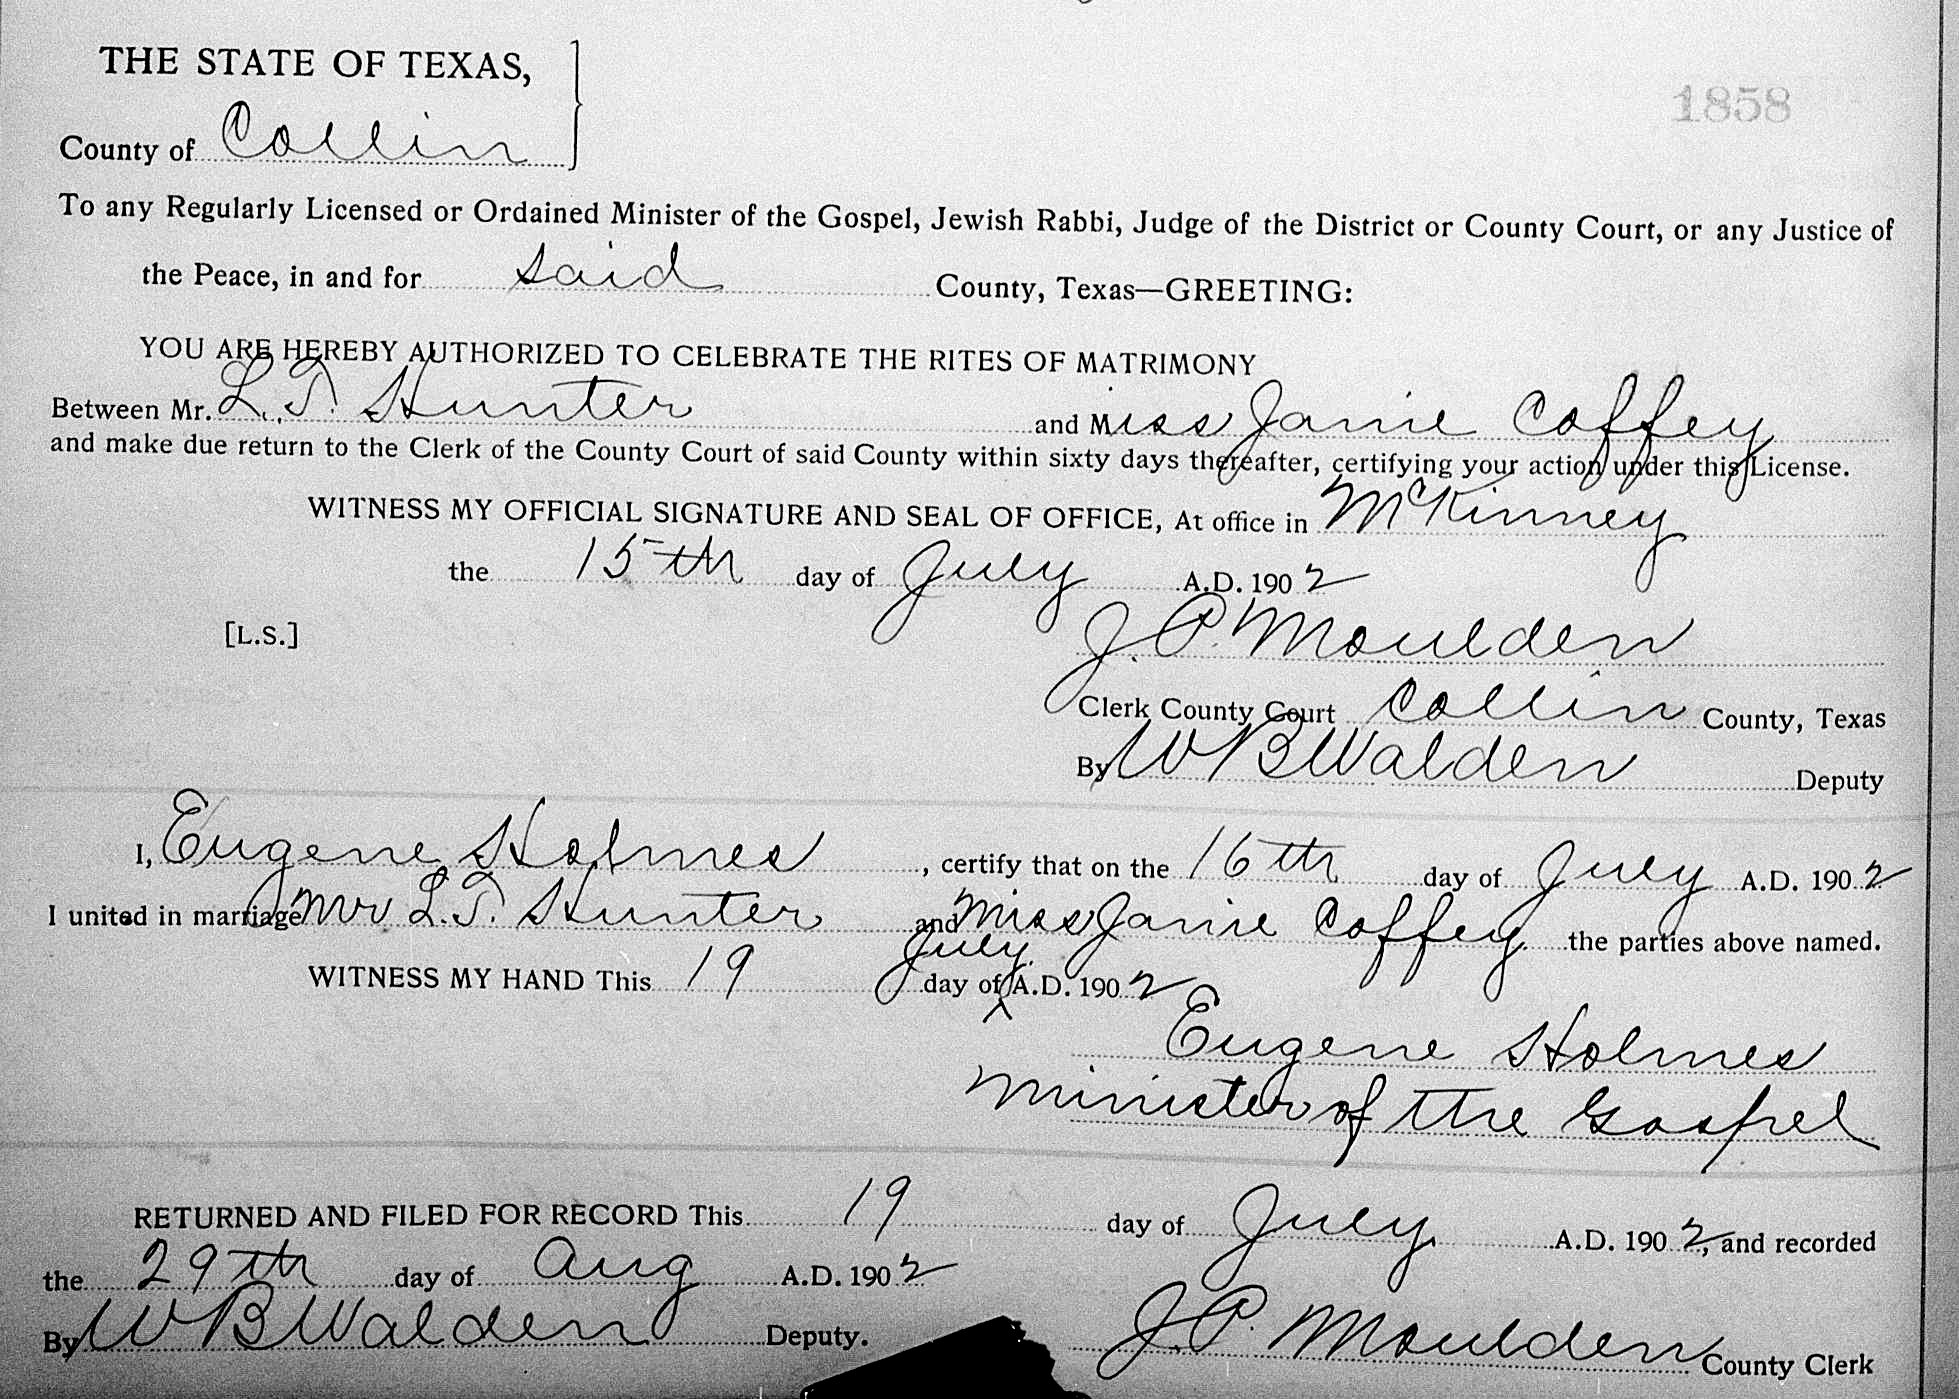 THE STATE OF TEXAS,
1858
County of Collin
To any Regularly Licensed or Ordained Minister of the Gospel, Jewish Rabbi, Judge of the District or County Court, or any Justice of
the Peace, in and for said County, Texas—GREETING:
YOU ARE HEREBY AUTHORIZED TO CELEBRATE THE RITES OF MATRIMONY
Between Mr. L. T. Hunter and Miss Janie Coffey
and make due return to the Clerk of the County Court of said County within sixty days thereafter, certifying your action under this License.
WITNESS MY OFFICIAL SIGNATURE AND SEAL OF OFFICE, At office in McKinney
the 15th day of July A.D. 1902
[L.S.]
J. P. Moulden
Clerk County Court Collin County, Texas
By W B Walden Deputy
I, Eugene Holmes, certify that on the 16th day of July A.D. 1902
I united in marriage Mr L. T. Hunter and Miss Janie Coffey the parties above named.
WITNESS MY HAND This 19 day of July A.D. 1902
Eugene Holmes
Minister of the Gospel
RETURNED AND FILED FOR RECORD This 19 day of July A.D. 1902, and recorded
the 29th day of Aug A.D. 1902
By W B Walden Deputy. J. P. Moulden County Clerk